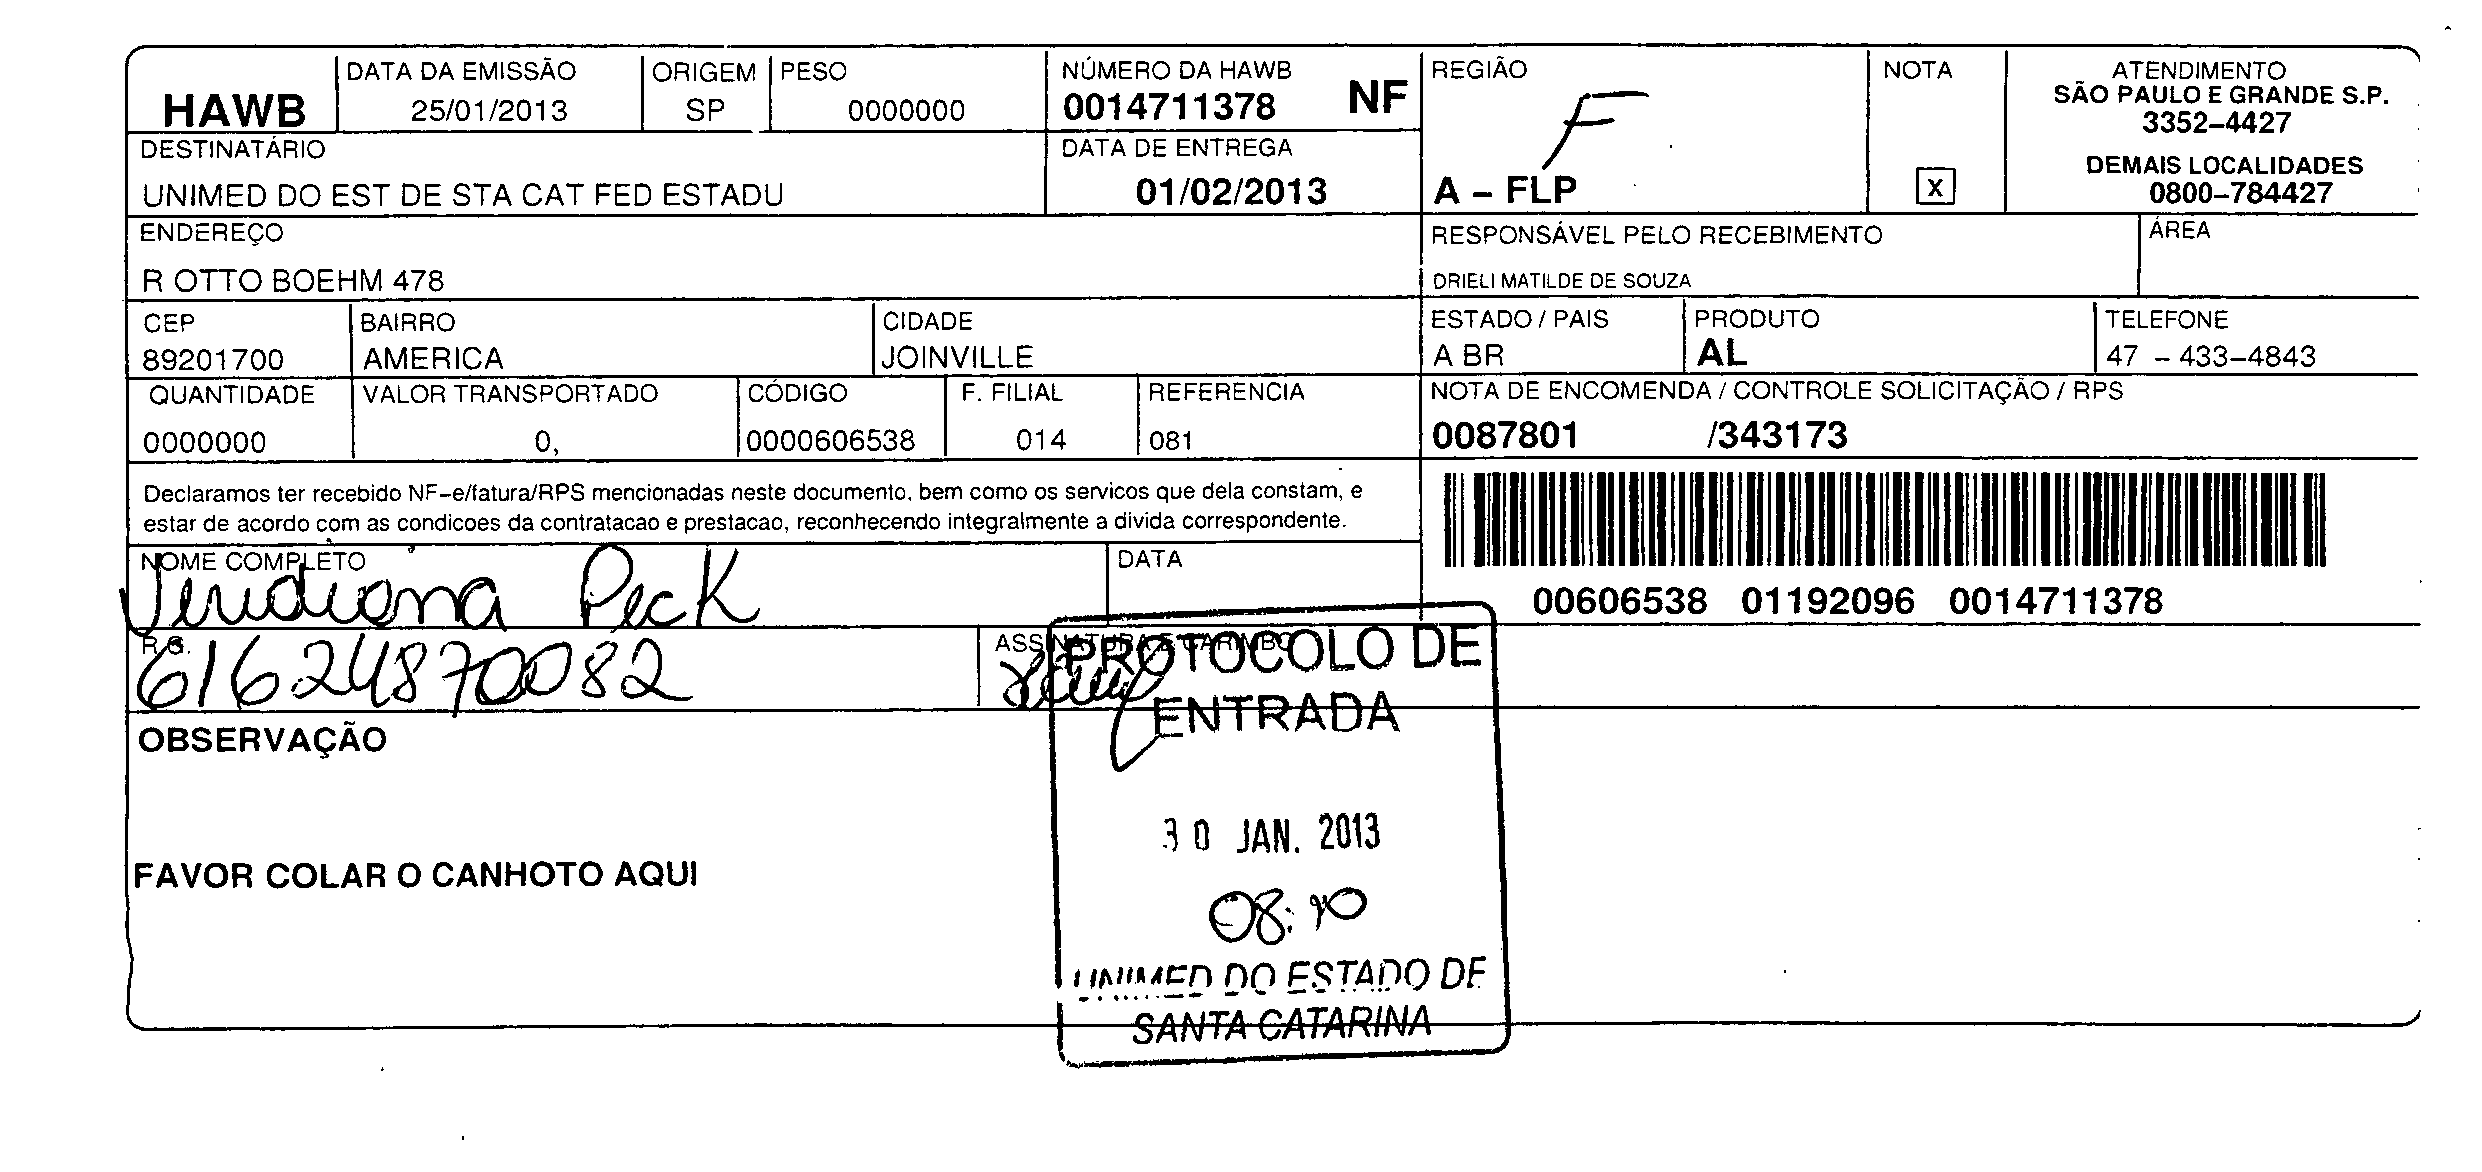 HAWB
DATA DA EMISSÃO
25/01/2013
ORIGEM
SP
PESO
0000000
NÚMERO DA HAWB
0014711378 NF
REGIÃO
F
A – FLP
NOTA
X
ATENDIMENTO
SÃO PAULO E GRANDE S.P.
3352–4427
DEMAIS LOCALIDADES
0800–784427
DESTINATÁRIO
UNIMED DO EST DE STA CAT FED ESTADU
DATA DE ENTREGA
01/02/2013
ENDEREÇO
R OTTO BOEHM 478
RESPONSÁVEL PELO RECEBIMENTO
DRIELI MATILDE DE SOUZA
ÁREA
CEP
89201700
BAIRRO
AMERICA
CIDADE
JOINVILLE
ESTADO / PAIS
A BR
PRODUTO
AL
TELEFONE
47 – 433–4843
QUANTIDADE
0000000
VALOR TRANSPORTADO
0,
CÓDIGO
0000606538
F. FILIAL
014
REFERENCIA
081
NOTA DE ENCOMENDA / CONTROLE SOLICITAÇÃO / RPS
0087801 /343173
Declaramos ter recebido NF–e/fatura/RPS mencionadas neste documento, bem como os servicos que dela constam, e
estar de acordo com as condicoes da contratacao e prestacao, reconhecendo integralmente a divida correspondente.
00606538 01192096 0014711378
NOME COMPLETO
Viridiana Peck
DATA
R.G.
61624870082
ASSINATURA E CARIMBO
PROTOCOLO DE
ENTRADA
30 JAN. 2013
08:10
UNIMED DO ESTADO DE
SANTA CATARINA
OBSERVAÇÃO
FAVOR COLAR O CANHOTO AQUI